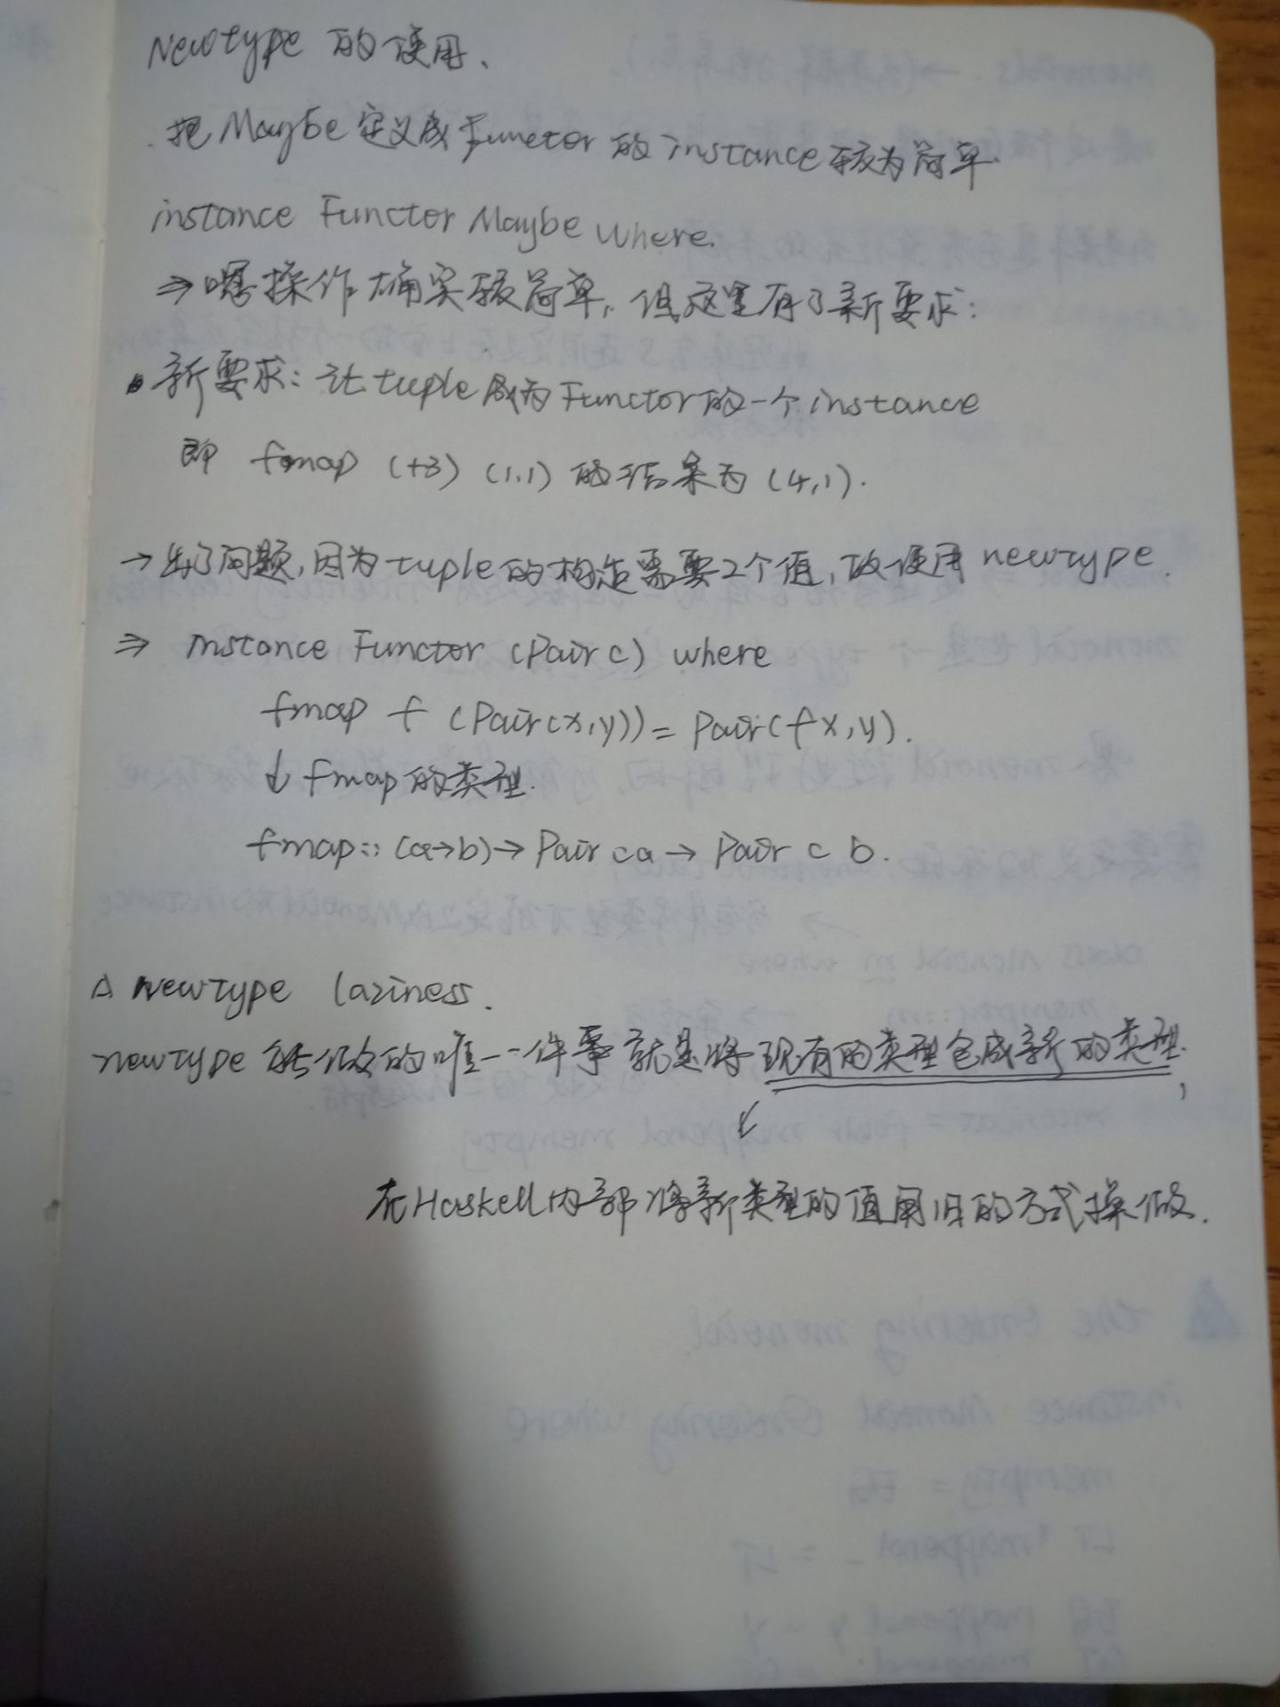 Newtype 的使用、
把Maybe定义成Functor 的instance较为简单.
instance Functor Maybe where.
⇒嗯操作确实较简单,但这里有了新要求:
新要求:让tuple成为Functor的一个instance
即 fmap (+3) (1,1) 的结果为 (4,1).
→出了问题,因为tuple的构造需要2个值,故使用 newtype.
⇒ instance Functor (Pair c) where
fmap f (Pair(x,y)) = Pair(f x,y).
↓ fmap的类型.
fmap:: (a→b)→Pair c a → Pair c b.
△ newtype laziness.
newtype 能做的唯一一件事就是将现有的类型包成新的类型,
↙
在Haskell内部将新类型的值用旧的方式操做.